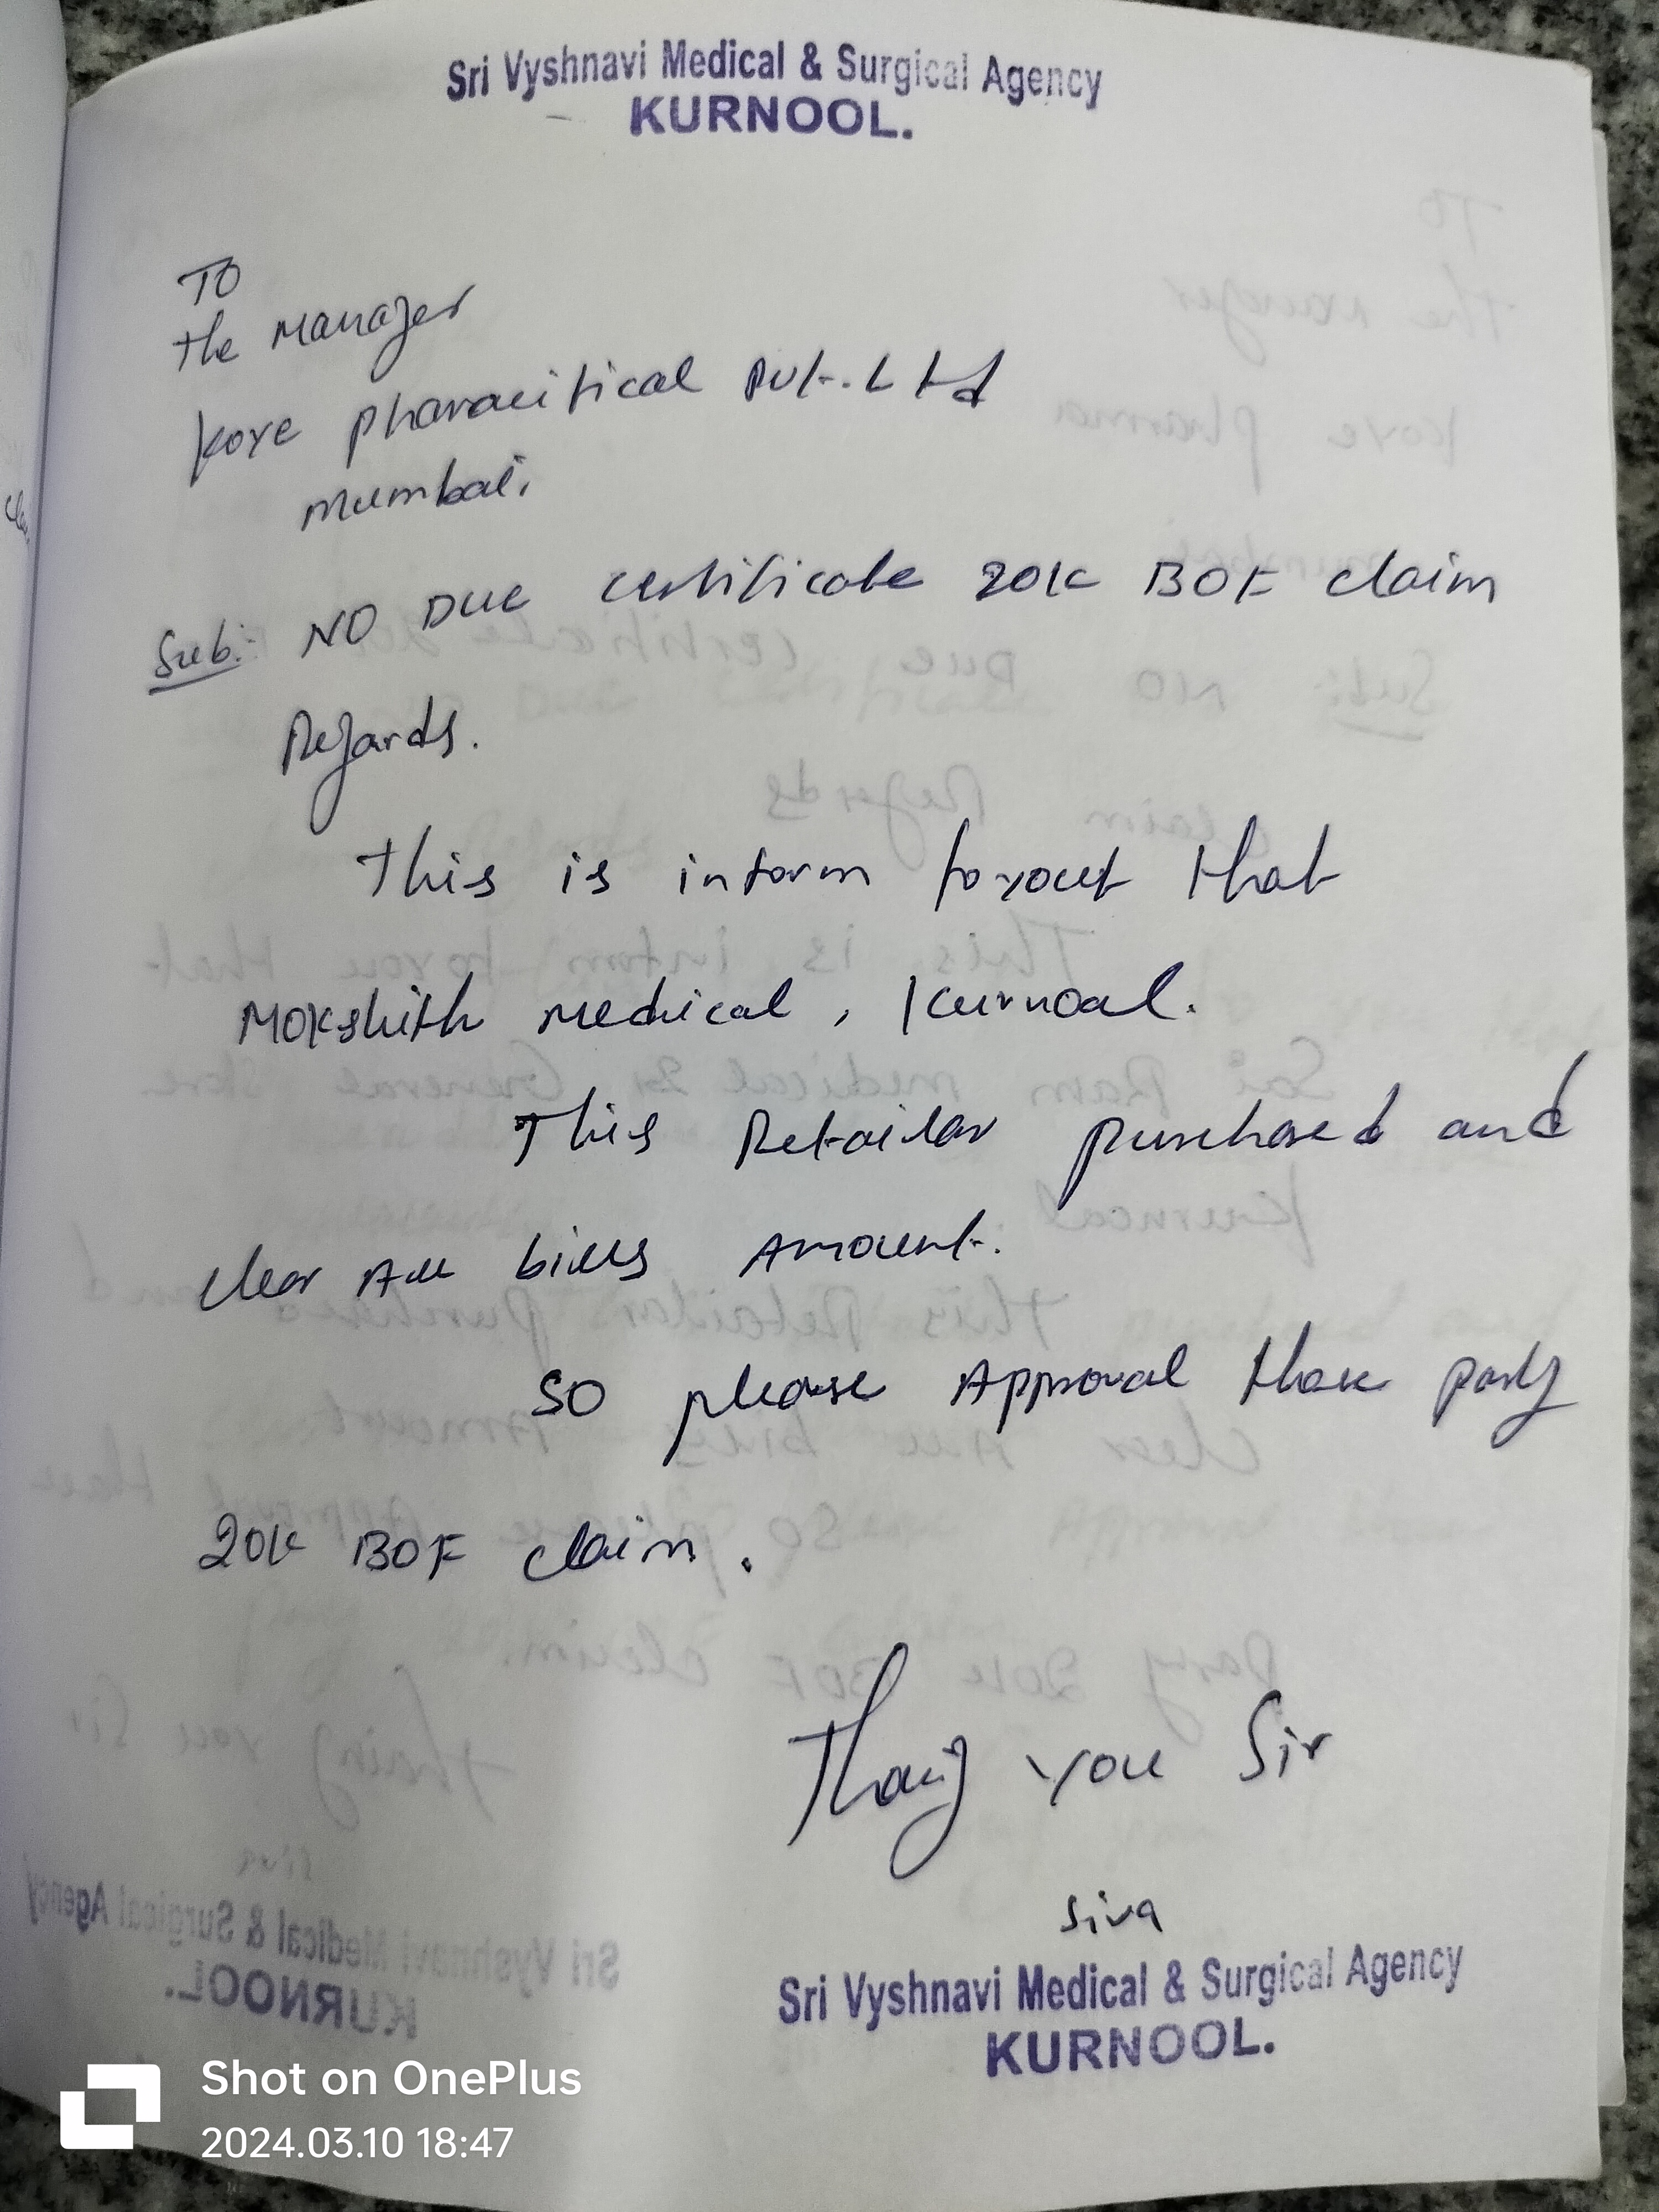 Sri Vyshnavi Medical & Surgical Agency
KURNOOL.
To
the Manager
Kore pharacitical Pvt. Ltd
Mumbai.
Sub:- NO DUE certificate 20K BOF claim
Regards.
This is inform to yout that
Mokshith Medical, Kurnoal.
This Retailar purchased and
clear All bills Amount.
So please Approval thase party
20K BOF claim.
Thang you Sir
Siva
Sri Vyshnavi Medical & Surgical Agency
KURNOOL.
Shot on OnePlus
2024.03.10 18:47